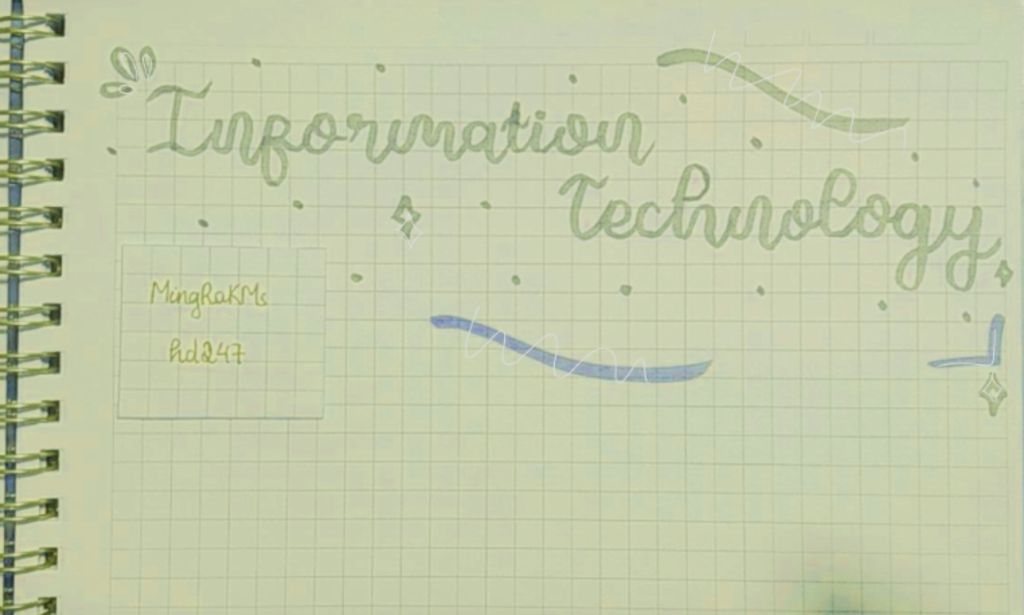 Information
Technology
MingRaKMs
hd247